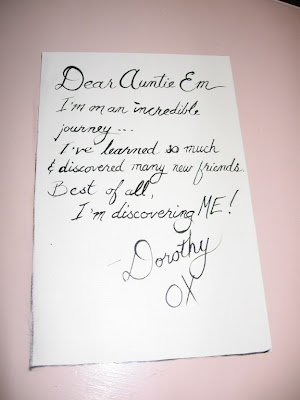 Dear Auntie Em
I'm on an incredible
journey...
I've learned so much
& discovered many new friends.
Best of all,
I'm discovering ME!
- Dorothy
OX